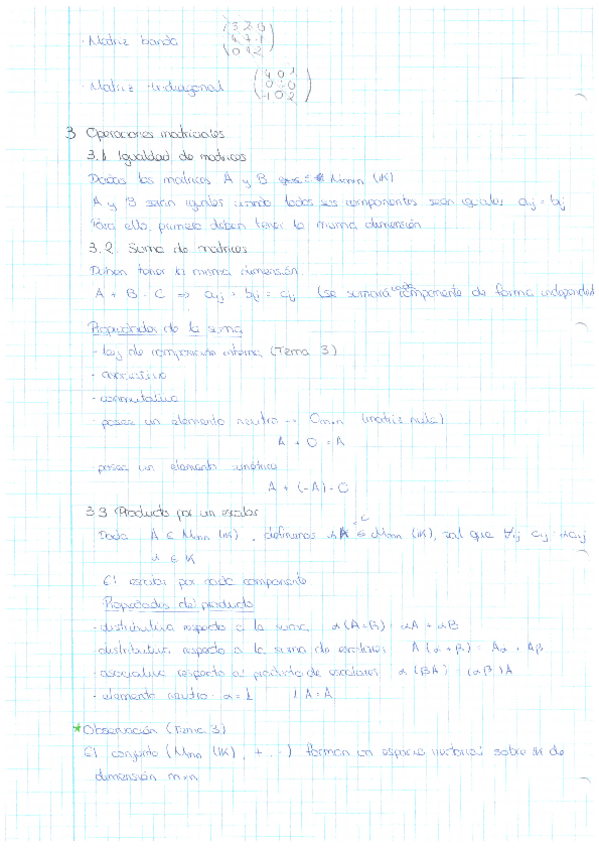 · Matriz banda (3 2 0
4 7 1
0 4 2)
· Matriz tridiagonal (4 0 1
0 0
-1 0 2)
3 Operaciones matriciales
3.1 Igualdad de matrices
Dadas las matrices A y B que ∈ Mmxn (K)
A y B serán iguales cuando todos sus componentes sean iguales aij = bij
Para ello, primero deben tener la misma dimensión
3.2. Suma de matrices
Deben tener la misma dimensión.
A + B = C ⇒ aij + bij = cij (se sumará cada componente de forma independ
Propiedades de la suma
- Ley de composición interna (Tema 3)
- asociativa
- conmutativa
- posee un elemento neutro → Omxn (matriz nula)
A + O = A
posee un elemento simétrico
A + (-A) = O
3.3 Producto por un escalar
Dada A ∈ Mmxn (K), definimos αA ∈ Mmxn (K), tal que ∀ij cij = αaij
C
α ∈ K
El escalar por cada componente
Propiedades del producto
- distributiva respecto a la suma α(A+B) = αA + αB
- distributiva respecto a la suma de escalares A(α+β) = Aα + Aβ
- asociativa respecto al producto de escalares α(βA) = (αβ)A
- elemento neutro α=1 1A=A
* Observación (Tema 3)
El conjunto (Mmxn (K), +, ·) forman un espacio vectorial sobre K de
dimensión m×n